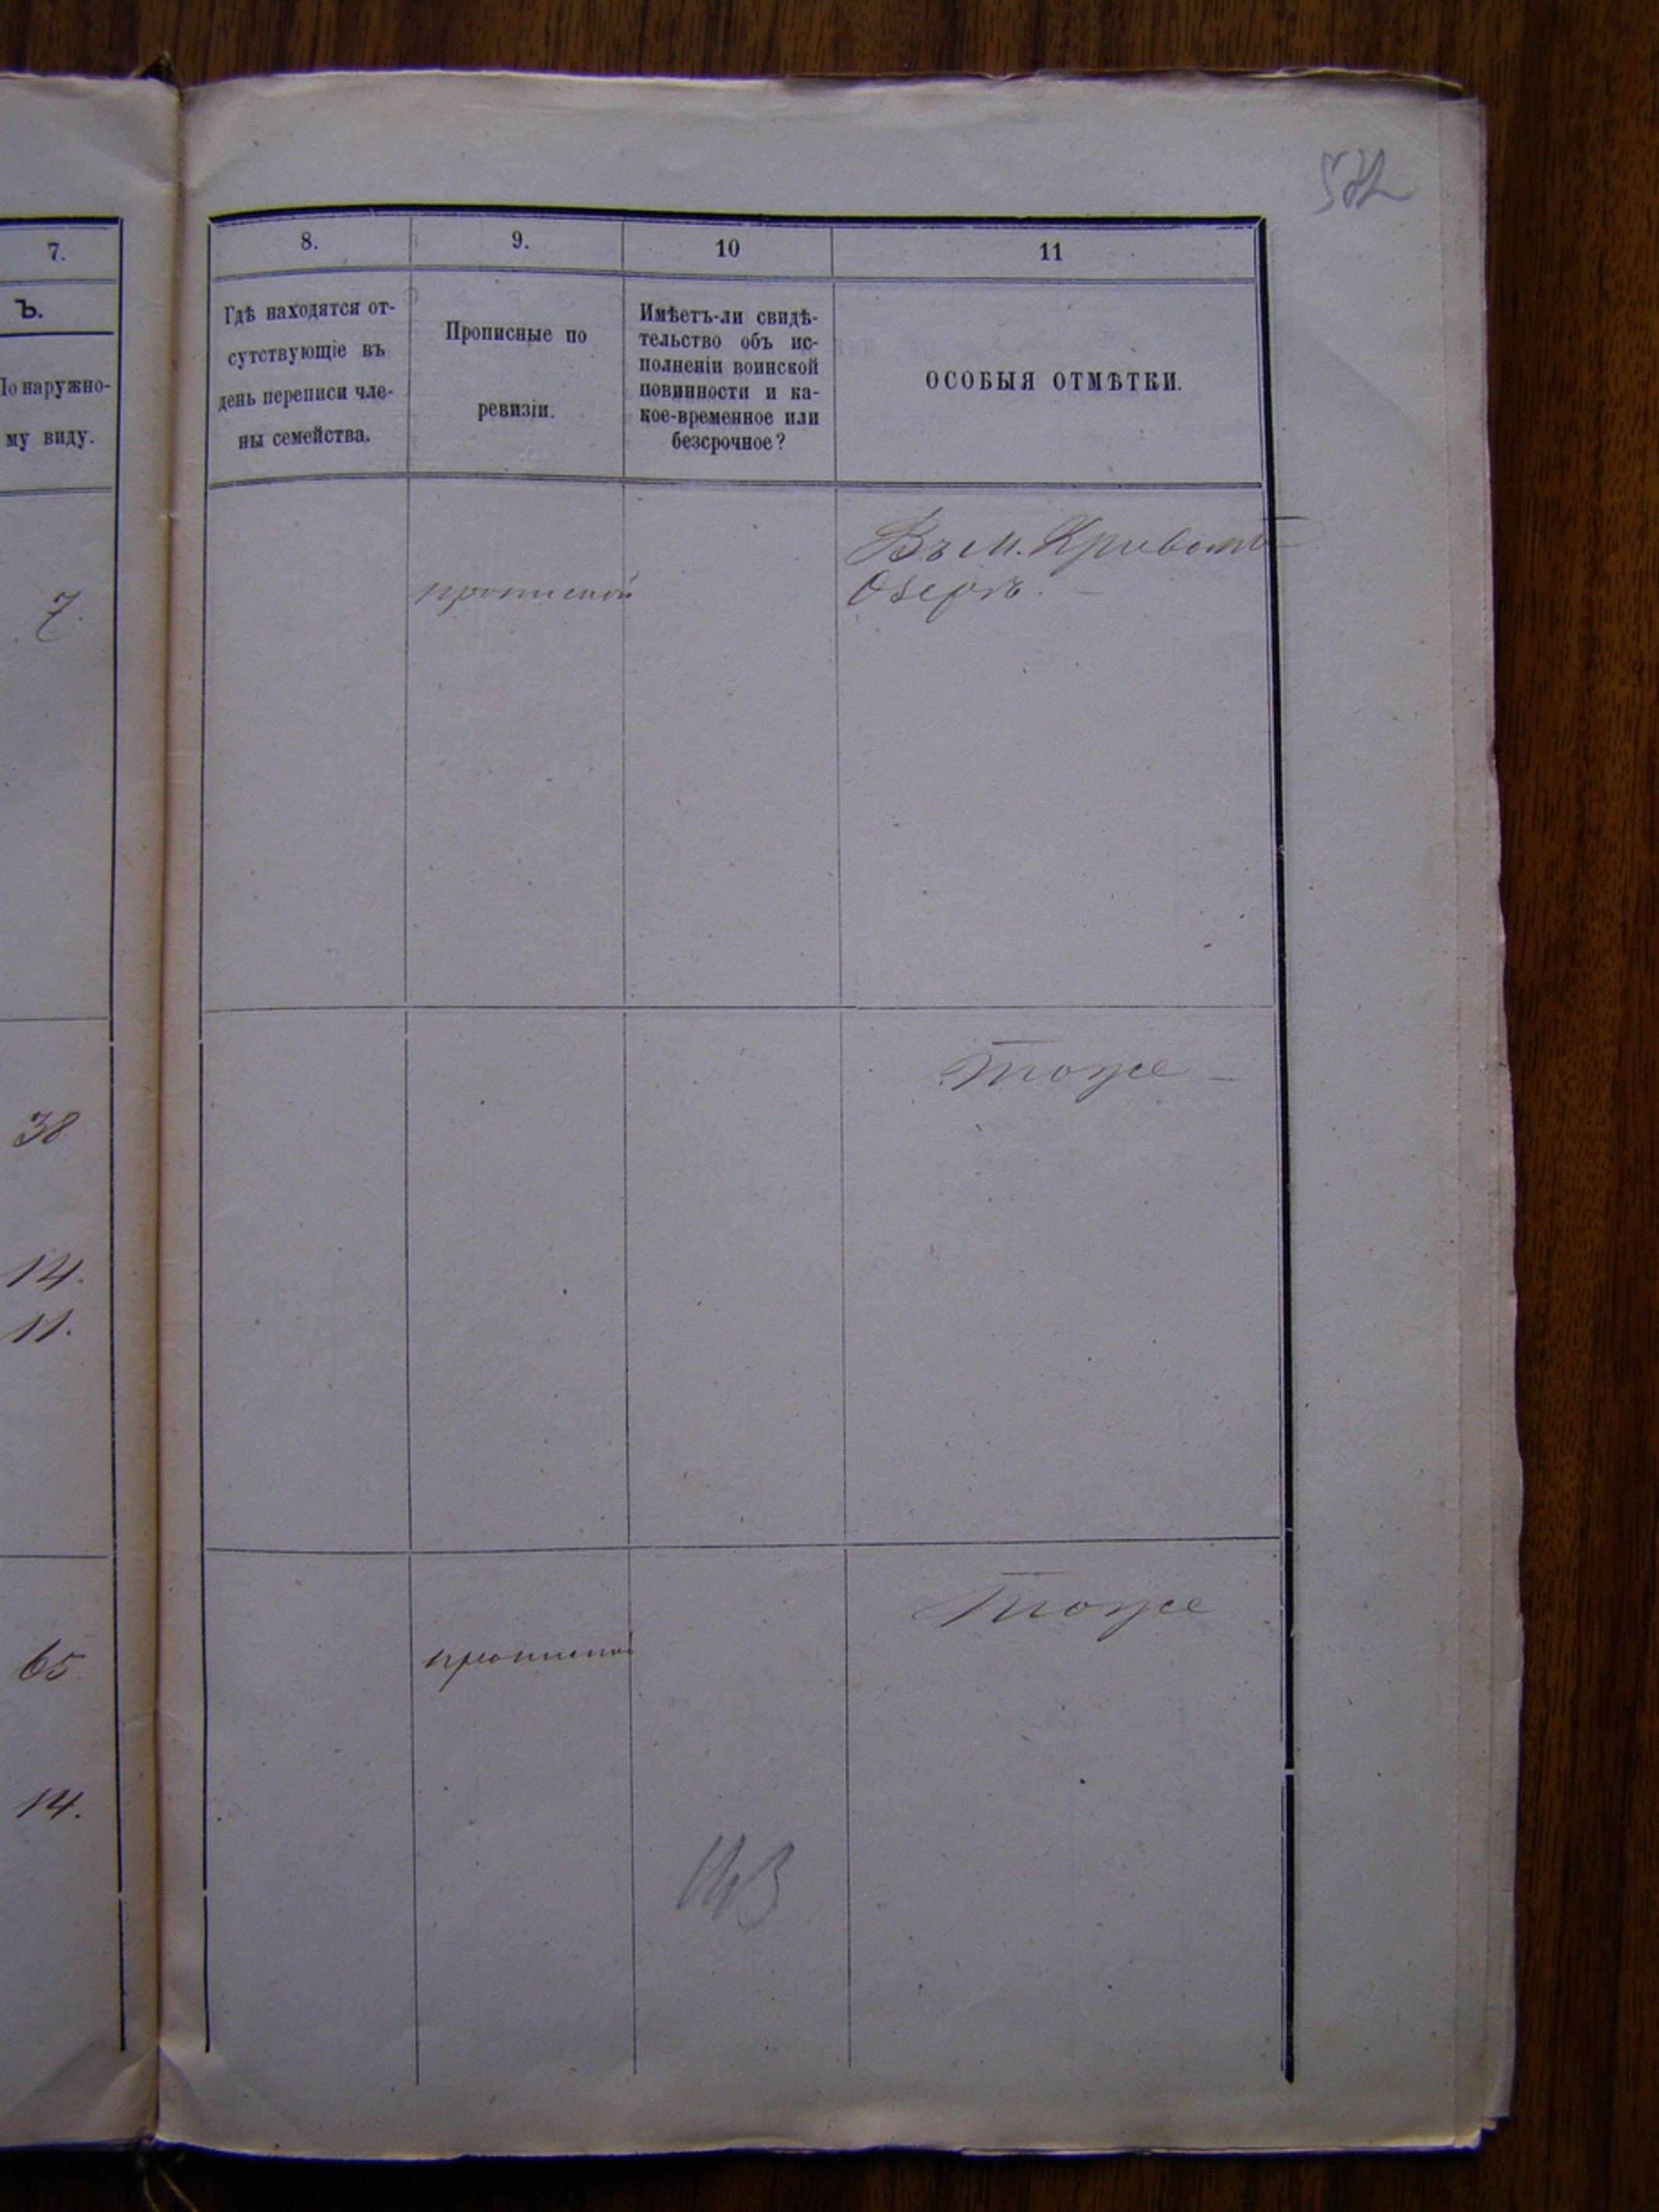 7.
Ъ.
По наружно-
му виду.
7.
38
14.
11.
65
14.
8.
9.
10
11
Гдѣ находятся от-
сутствующіе въ
день переписи чле-
ны семейства.
Прописные по
ревизіи.
Имѣетъ-ли свидѣ-
тельство объ ис-
полненіи воинской
повинности и ка-
кое-временное или
безсрочное?
ОСОБЫЯ ОТМѢТКИ.
прописной
Въ м. Кривомъ
Озерѣ. –
Тоже –
прописной
Тоже
143